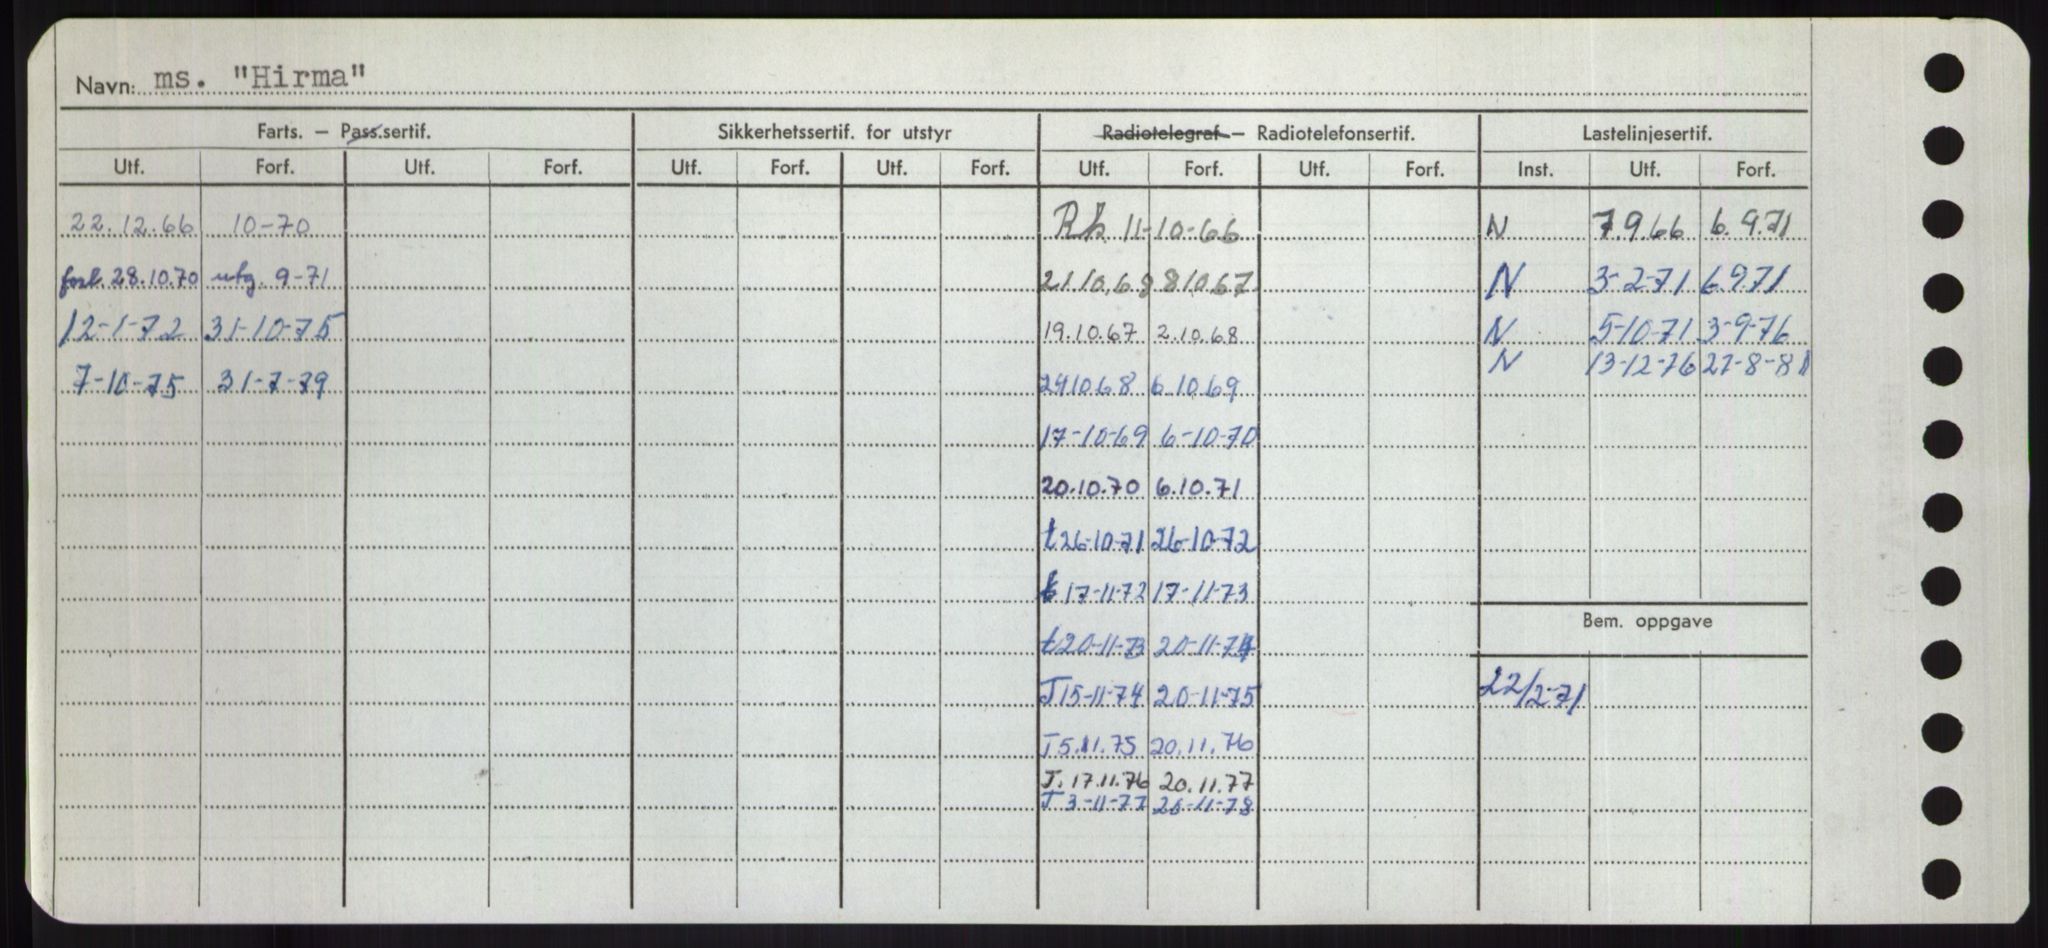 Navn: ms. "Hirma"
Farts. — Pass.sertif. Sikkerhetssertif. for utstyr Radiotelegraf — Radiotelefonsertif. Lastelinjesertif.
Utf. Forf. Utf. Forf. Utf. Forf. Utf. Forf. Utf. Forf. Utf. Forf. Inst. Utf. Forf.
22.12.66 10-70 Rk 11-10-66 N 7.9.66 6.9.71
forl. 28.10.70 utg. 9-71 21 10.68 8 10 67 N 3-2-71 6.9.71
12-1-72 31-10-75 19.10.67 2.10.68 N 5-10-71 3-9-76
N 13-12-76 27-8-81
7-10-75 31-7-79 29 10 68 6.10.69
17-10-69 6-10-70
20.10.70 6.10.71
t 26-10-71 26-10-72
t 17-11-72 17-11-73
Bem. oppgave
t 20-11-73 20-11-74
J 15-11-74 20-11-75 22/2-71
J 5.11.75 20.11.76
J. 17.11.76 20.11.77
J 3-11-77 20-11-78